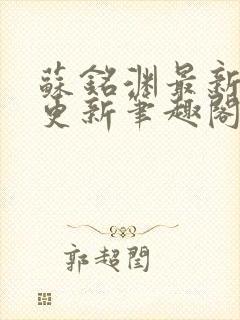 蘇銘淵最新
更新筆趣閣
郭超閏